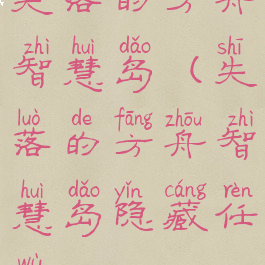 失落的方舟
zhì huì dǎo shī
智慧岛(失
luò de fāng zhōu zhì
落的方舟智
huì dǎo yǐn cáng rèn
慧岛隐藏任
wù